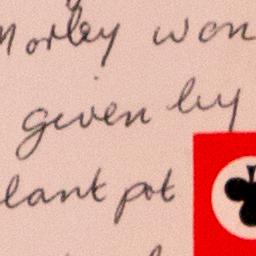 Morley won
given by
lant pot